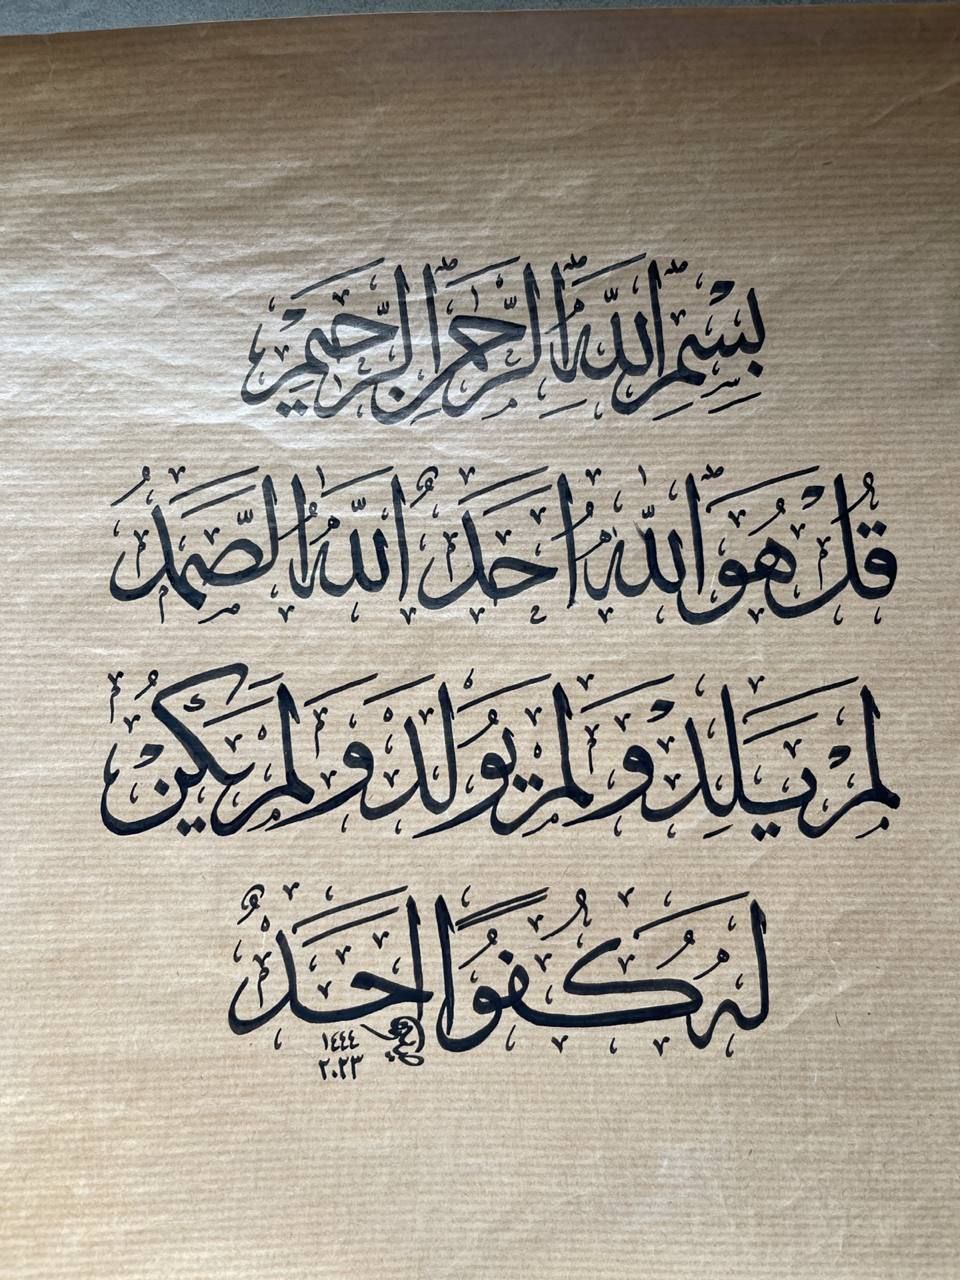 بِسْمِ اللَّهِ الرَّحْمٰنِ الرَّحِيمِ
قُلْ هُوَ اللّٰهُ أَحَدٌ اللّٰهُ الصَّمَدُ
لَمْ يَلِدْ وَلَمْ يُولَدْ وَلَمْ يَكُنْ
لَهُ كُفُوًا أَحَدٌ
١٤٤٤
٢٠٢٣